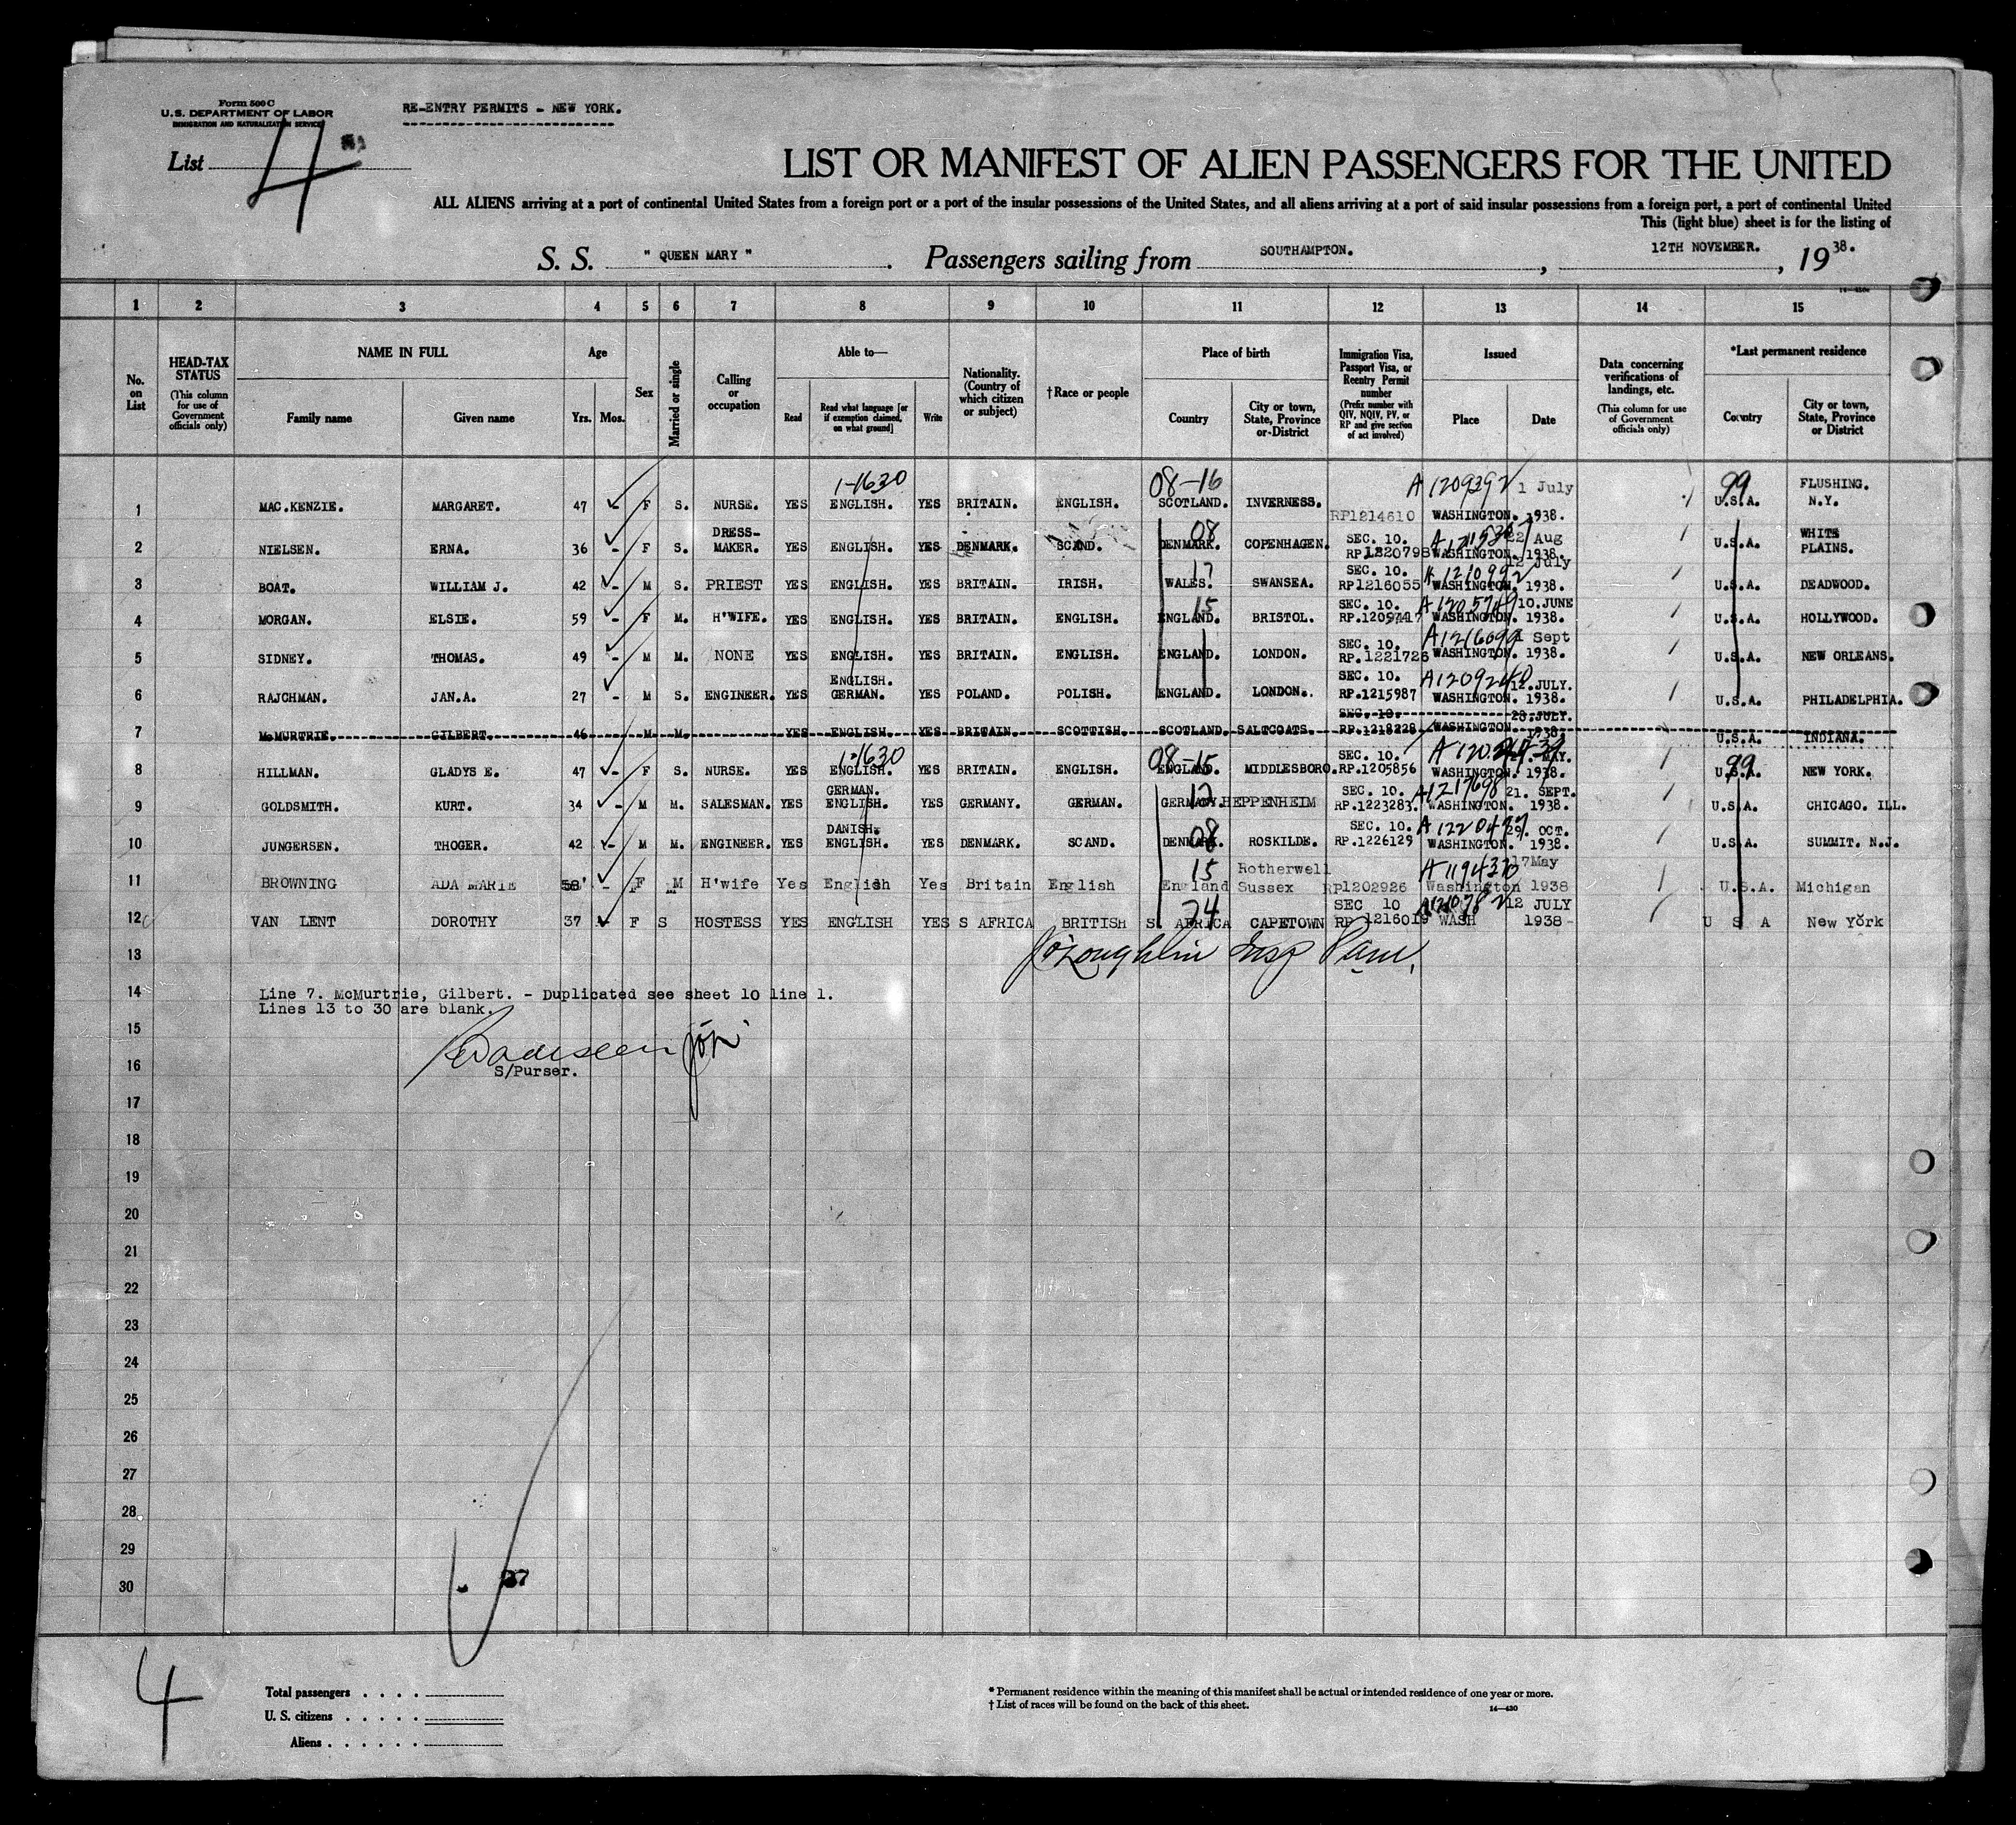 Form 500 C
U.S. DEPARTMENT OF LABOR
IMMIGRATION AND NATURALIZATION SERVICE
RE-ENTRY PERMITS - NEW YORK.
List 4
LIST OR MANIFEST OF ALIEN PASSENGERS FOR THE UNITED
ALL ALIENS arriving at a port of continental United States from a foreign port or a port of the insular possessions of the United States, and all aliens arriving at a port of said insular possessions from a foreign port, a port of continental United
This (light blue) sheet is for the listing of
S. S. " QUEEN MARY " . Passengers sailing from SOUTHAMPTON. , 12TH NOVEMBER. , 19 38.
1 2 3 4 5 6 7 8 9 10 11 12 13 14 15
No. on List
HEAD-TAX STATUS (This column for use of Government officials only)
NAME IN FULL
Family name Given name
Age
Yrs. Mos.
Sex
Married or single
Calling or occupation
Able to—
Read Read what language [or if exemption claimed, on what ground] Write
Nationality. (Country of which citizen or subject)
† Race or people
Place of birth
Country City or town, State, Province or District
Immigration Visa, Passport Visa, or Reentry Permit number (Prefix number with QIV, NQIV, PV, or RP and give section of act involved)
Issued
Place Date
Data concerning verifications of landings, etc. (This column for use of Government officials only)
*Last permanent residence
Country City or town, State, Province or District
1-1630 08-16 A1209392 99
1 MAC.KENZIE. MARGARET. 47 - F S. NURSE. YES ENGLISH. YES BRITAIN. ENGLISH. SCOTLAND. INVERNESS. RP1214610 WASHINGTON. 1 July 1938. U.S.A. FLUSHING. N.Y.
2 NIELSEN. ERNA. 36 - F S. DRESS-MAKER. YES ENGLISH. YES DENMARK. SCAND. 08 DENMARK. COPENHAGEN. SEC. 10. RP1220798 WASHINGTON. 22 Aug 1938. U.S.A. WHITE PLAINS.
3 BOAT. WILLIAM J. 42 - M S. PRIEST YES ENGLISH. YES BRITAIN. IRISH. 17 WALES. SWANSEA. SEC. 10. RP1216055 A1210992 WASHINGTON. 12 July 1938. U.S.A. DEADWOOD.
4 MORGAN. ELSIE. 59 - F M. H'WIFE. YES ENGLISH. YES BRITAIN. ENGLISH. 15 ENGLAND. BRISTOL. SEC. 10. A1205749 WASHINGTON. 10.JUNE 1938. U.S.A. HOLLYWOOD.
5 SIDNEY. THOMAS. 49 - M M. NONE YES ENGLISH. YES BRITAIN. ENGLISH. ENGLAND. LONDON. SEC. 10. RP.1221726 WASHINGTON. 1 Sept 1938. U.S.A. NEW ORLEANS.
6 RAJCHMAN. JAN.A. 27 - M S. ENGINEER. YES ENGLISH. GERMAN. YES POLAND. POLISH. ENGLAND. LONDON. SEC. 10. RP.1215987 A1209240 WASHINGTON. 12.JULY. 1938. U.S.A. PHILADELPHIA.
7 McMURTRIE. GILBERT. 46 M M. YES ENGLISH. YES BRITAIN. SCOTTISH. SCOTLAND. SALTCOATS. SEC. 10. RP.1218228 WASHINGTON. 23.JULY. 1938. U.S.A. INDIANA.
1-1630 08-15 99
8 HILLMAN. GLADYS E. 47 - F S. NURSE. YES ENGLISH. YES BRITAIN. ENGLISH. ENGLAND. MIDDLESBORO. SEC. 10. RP.1205856 WASHINGTON. MAY. 1938. U.S.A. NEW YORK.
9 GOLDSMITH. KURT. 34 - M M. SALESMAN. YES GERMAN. ENGLISH. YES GERMANY. GERMAN. 12 GERMANY. HEPPENHEIM SEC. 10. RP.1223283. A1217698 WASHINGTON. 21. SEPT. 1938. U.S.A. CHICAGO. ILL.
10 JUNGERSEN. THOGER. 42 - M M. ENGINEER. YES DANISH. ENGLISH. YES DENMARK. SCAND. 08 DENMARK. ROSKILDE. SEC. 10. RP.1226129 WASHINGTON. OCT. 1938. U.S.A. SUMMIT. N.J.
11 BROWNING ADA MARIE 58 - F M H'wife Yes English Yes Britain English 15 England Rotherwell Sussex RP1202926 A1194370 Washington 17May 1938 U.S.A. Michigan
12 VAN LENT DOROTHY 37 F S HOSTESS YES ENGLISH YES S AFRICA BRITISH 24 S. AFRICA CAPETOWN SEC 10 RP 1216019 WASH 12 JULY 1938- U S A New York
13 J O'Loughlin Insp
14 Line 7. McMurtrie, Gilbert. - Duplicated see sheet 10 line 1.
Lines 13 to 30 are blank.
15
S/Purser.
16
17
18
19
20
21
22
23
24
25
26
27
28
29
30
4
Total passengers . . . .
U. S. citizens . . . . .
Aliens . . . . . .
* Permanent residence within the meaning of this manifest shall be actual or intended residence of one year or more.
† List of races will be found on the back of this sheet.
14—430